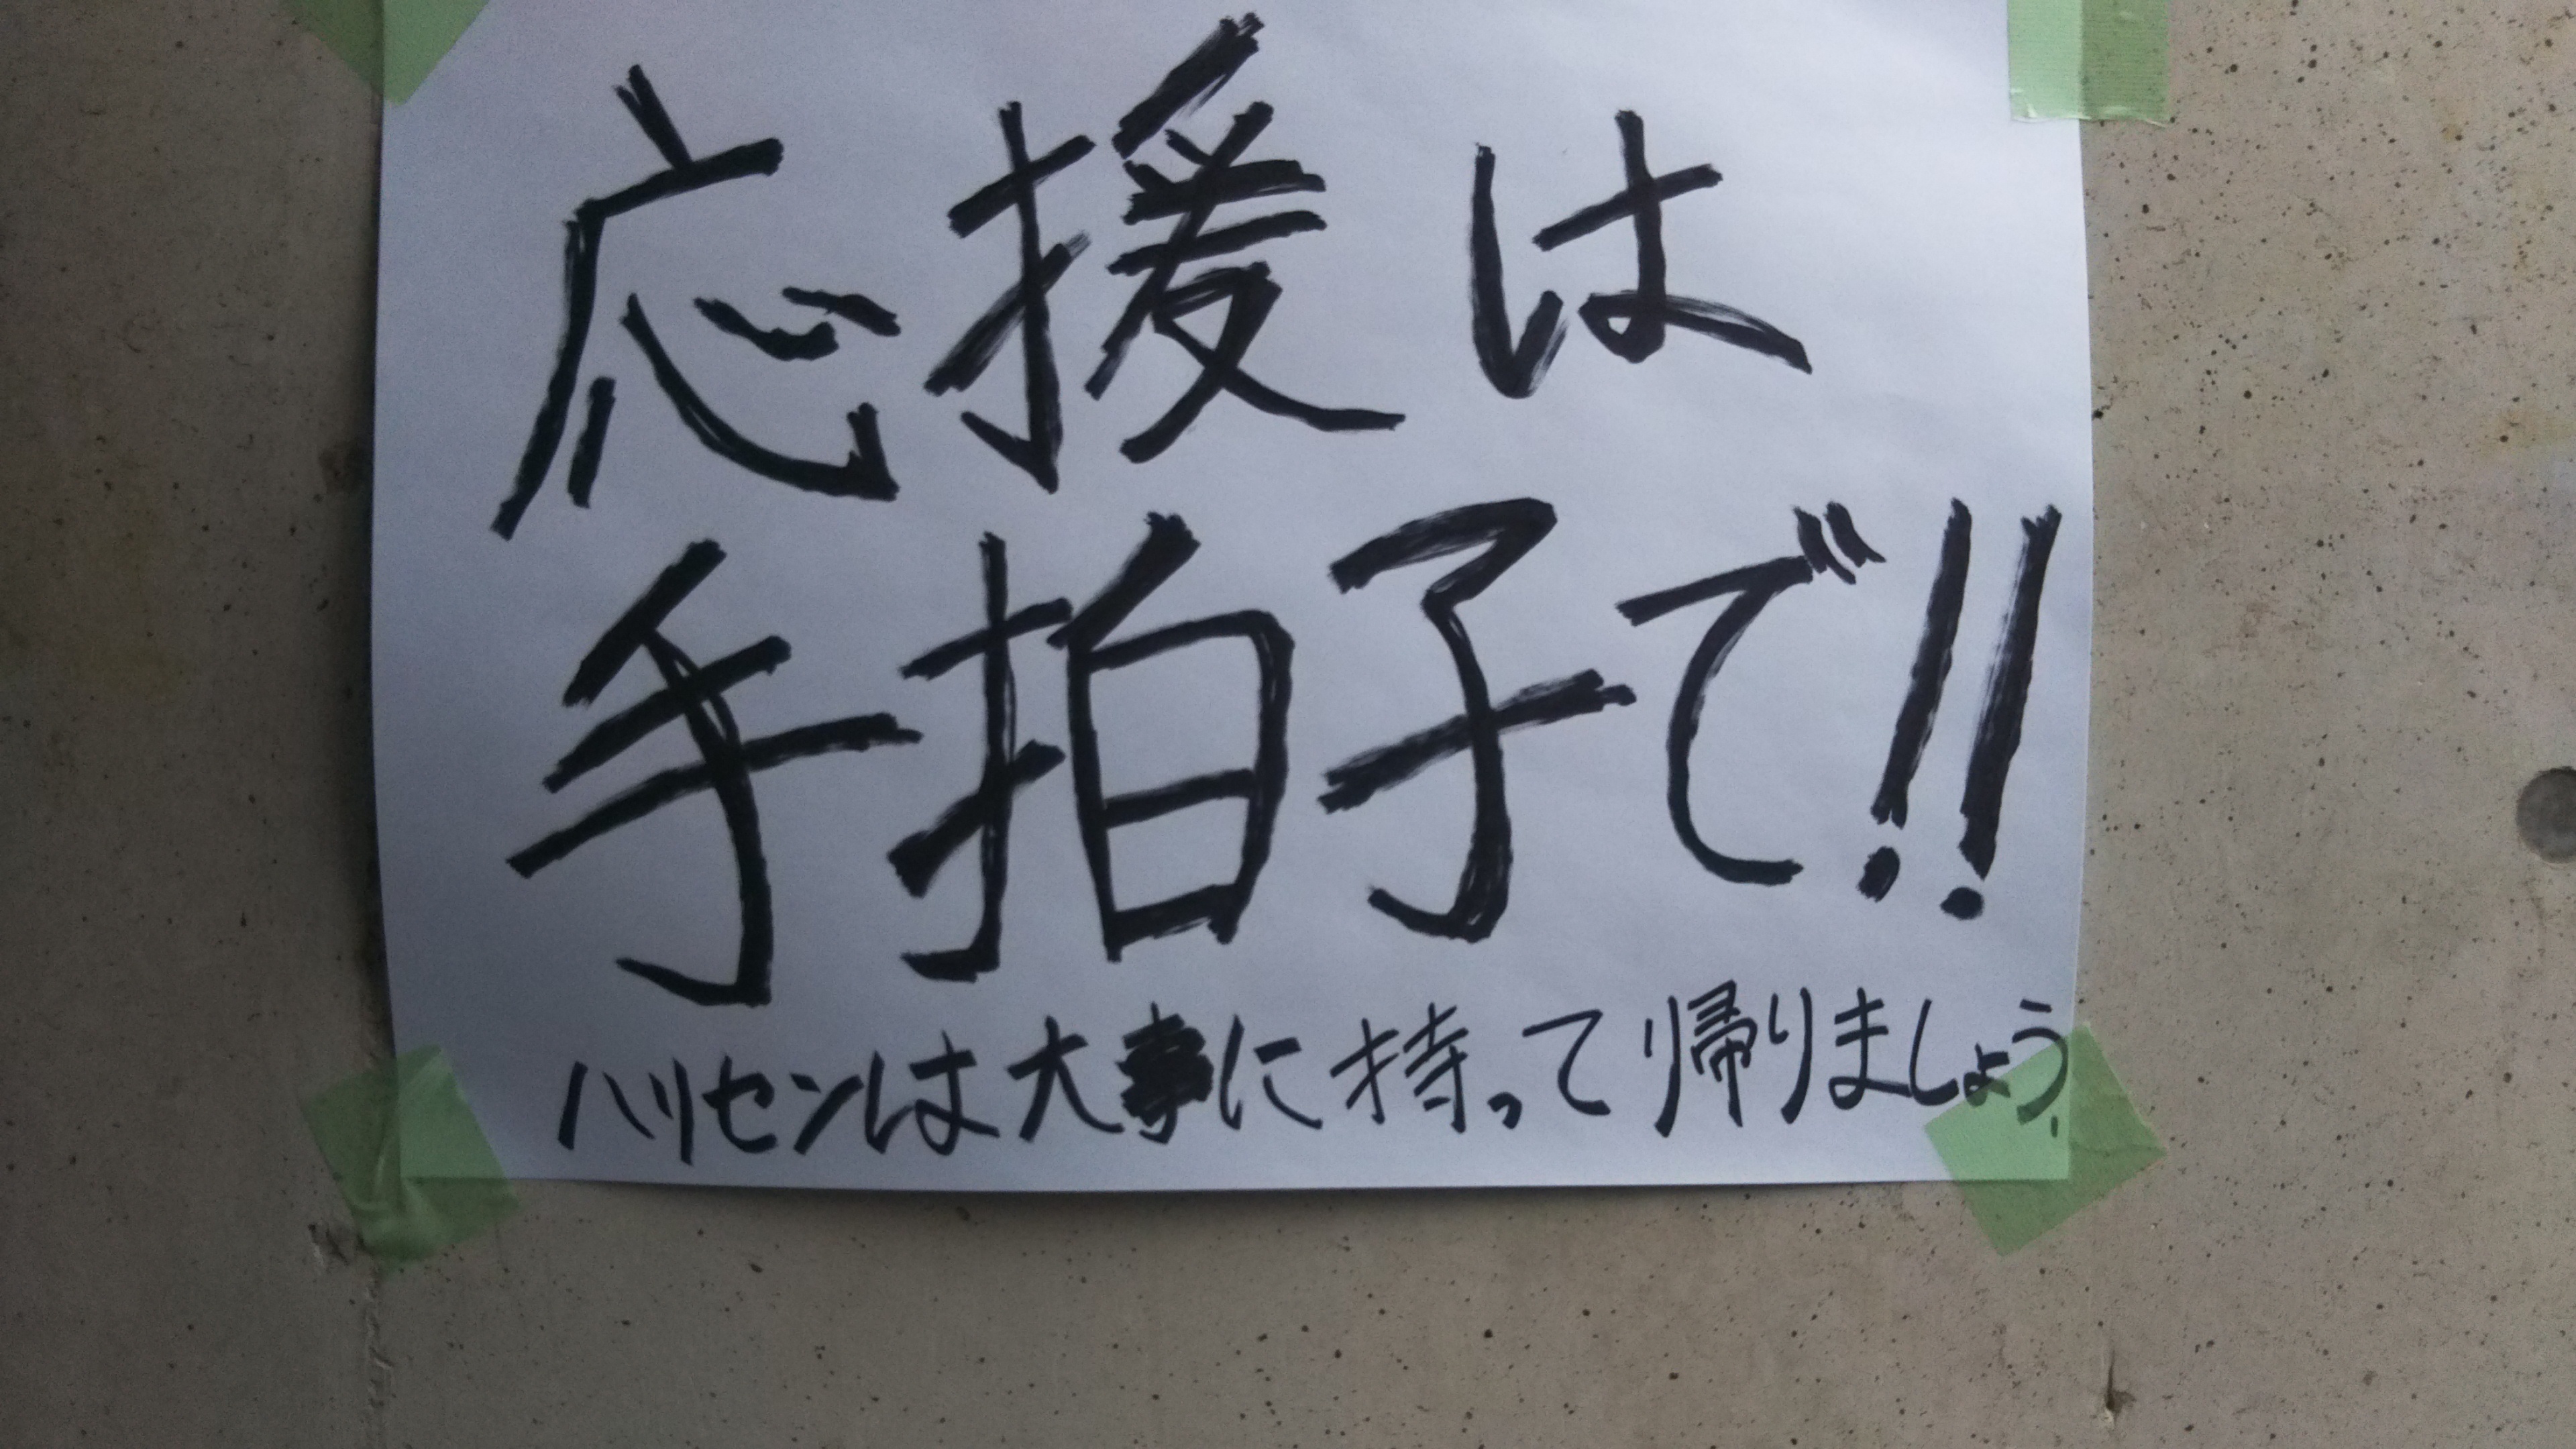 応援は
手拍子で!!
ハリセンは大事に持って帰りましょう